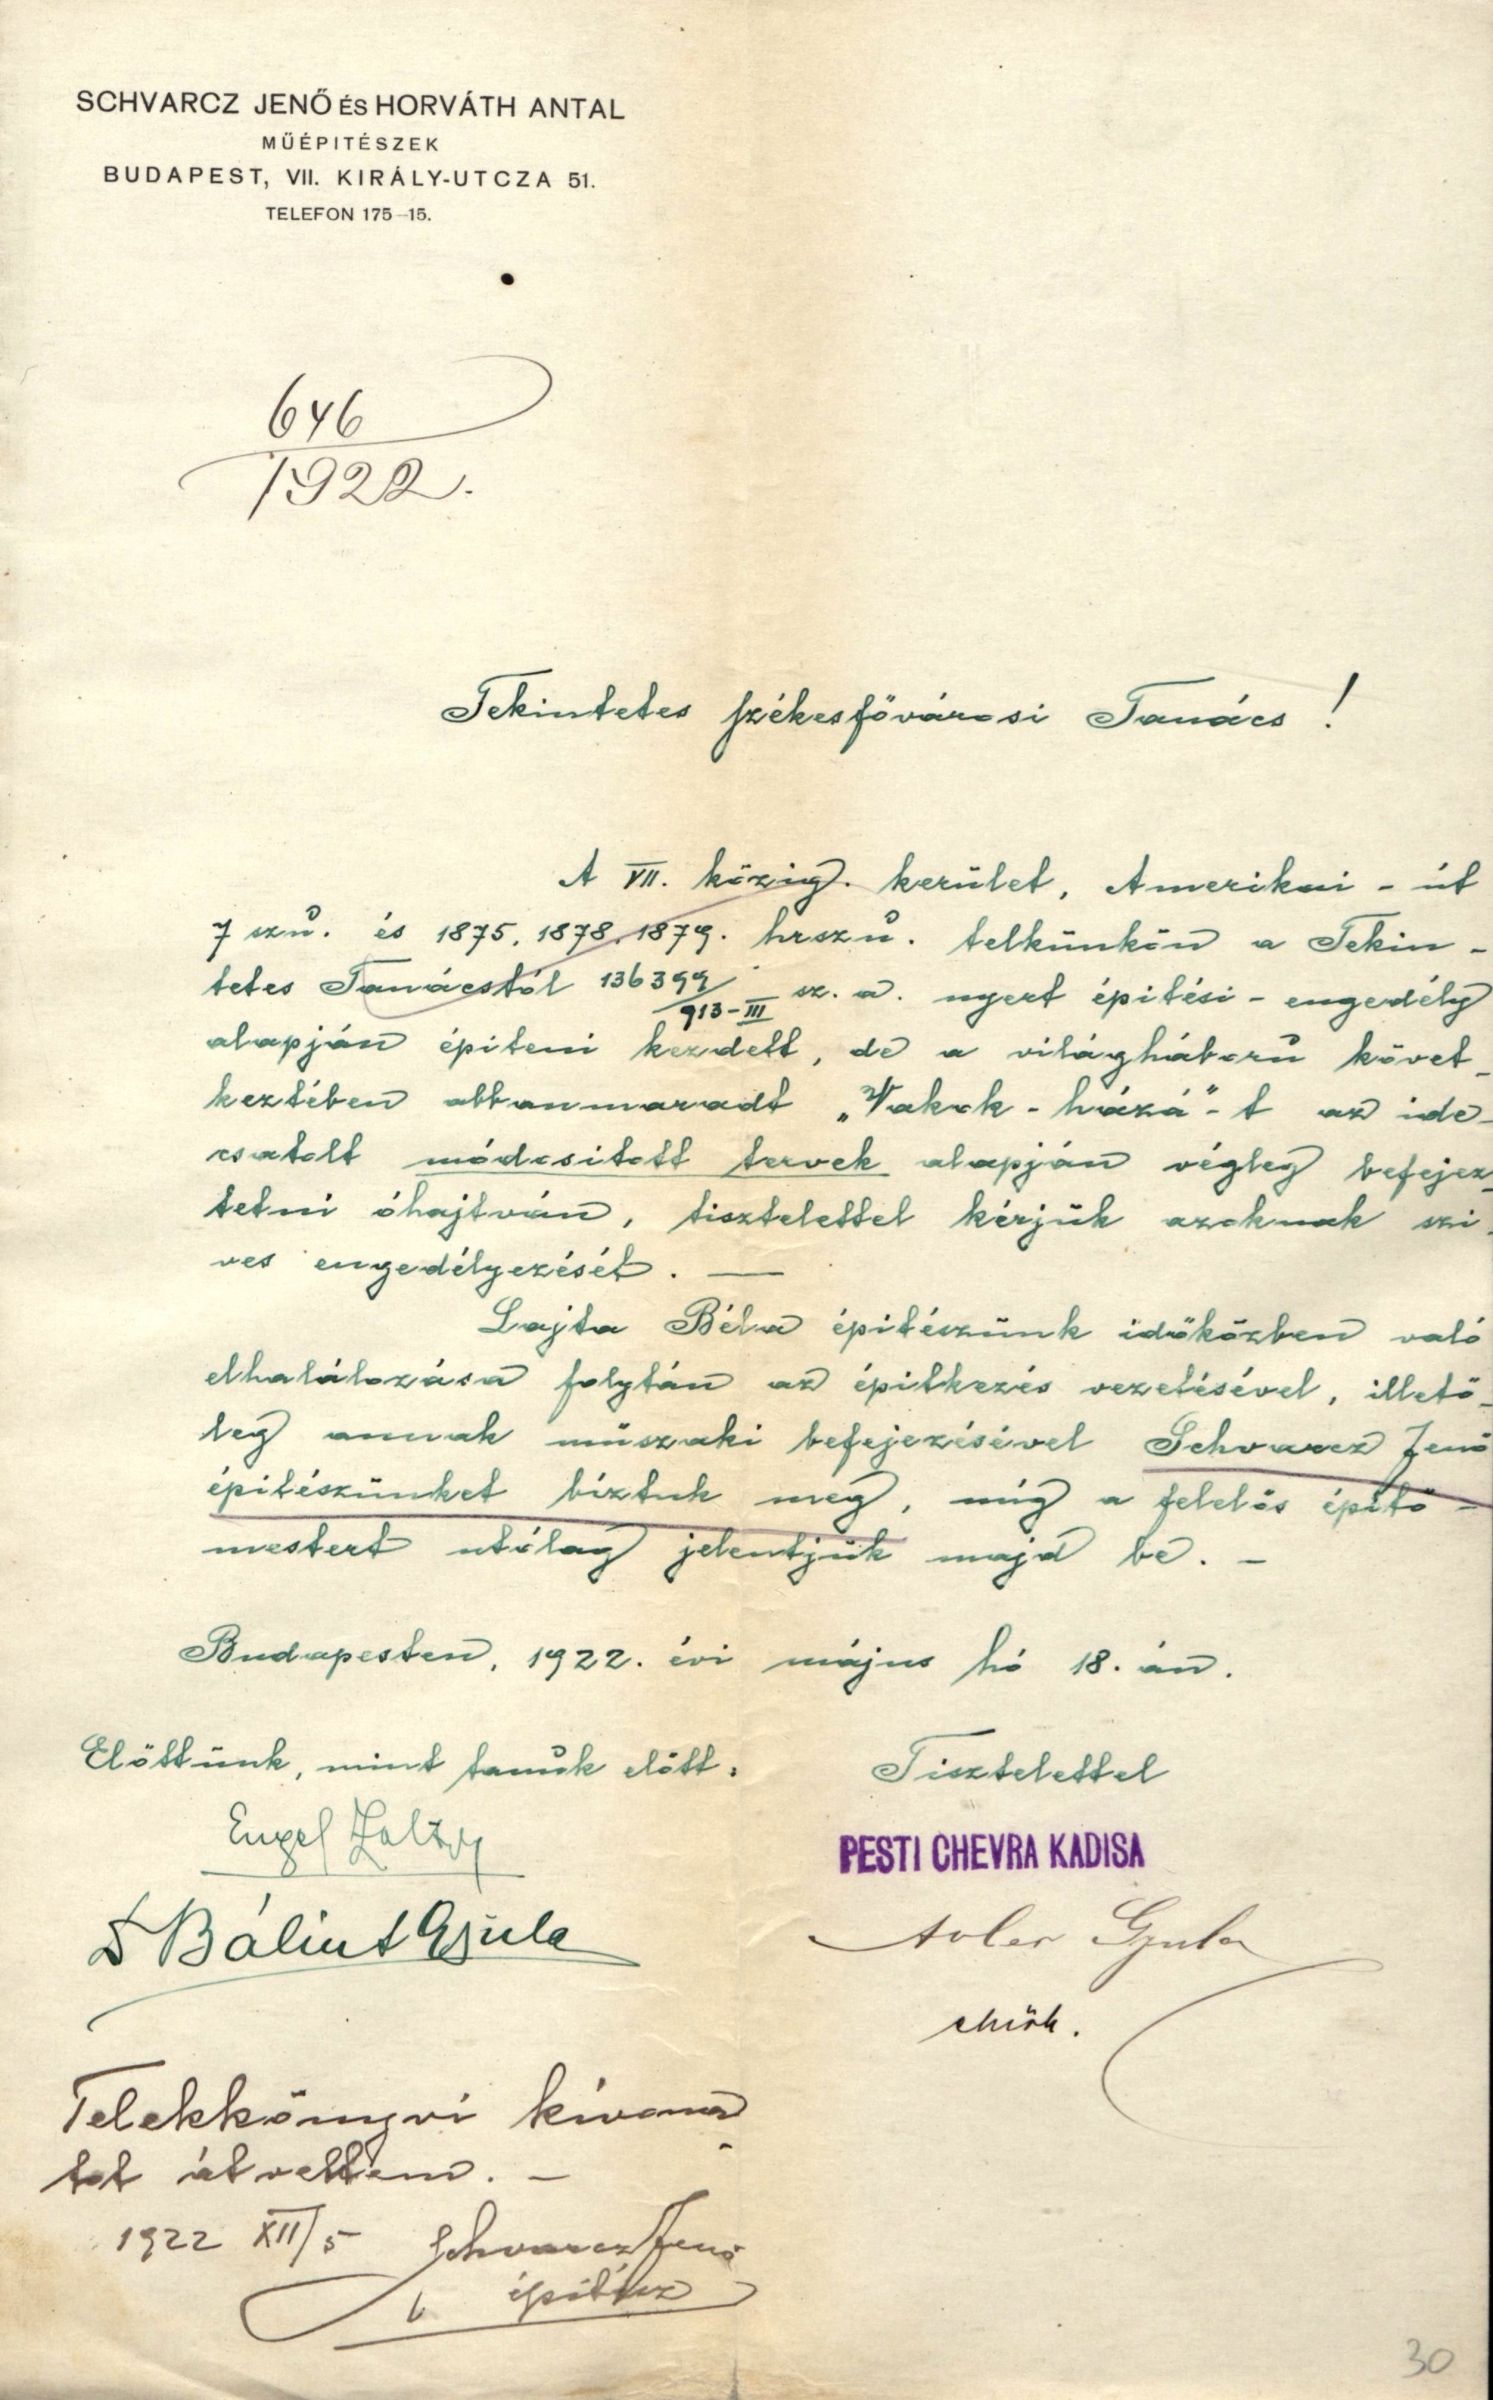 SCHVARCZ JENŐ ÉS HORVÁTH ANTAL
MŰÉPITÉSZEK
BUDAPEST, VII. KIRÁLY-UTCZA 51.
TELEFON 175-15.
646
1922.
Tekintetes székesfővárosi Tanács!
A VII. közig. kerület, Amerikai-út
7 szú. és 1875, 1878, 1879. hrszú. telkünkön a Tekin-
tetes Tanácstól 136399/913-III sz. a. nyert épitési-engedély
alapján épiteni kezdett, de a világháború követ-
keztében abbanmaradt „Vakok-házá"-t az ide-
csatolt módositott tervek alapján végleg befejez-
tetni óhajtván, tisztelettel kérjük azoknak szi-
ves engedélyezését. —
Lajta Béla épitészünk időközben való
elhalálozása folytán az épitkezés vezetésével, illető-
leg annak műszaki befejezésével Schvarcz Jenő
épitészünket biztuk meg, mig a felelős épitő-
mestert utólag jelentjük majd be. —
Budapesten, 1922. évi május hó 18.-án.
Előttünk, mint tanúk előtt:
Tisztelettel
Engel
PESTI CHEVRA KADISA
Dr Bálint Gyula
Adler Gyula
elnök.
Telekkönyvi kivona-
tot átvettem. —
1922 XII/5 Schvarcz Jenő
épitész
30